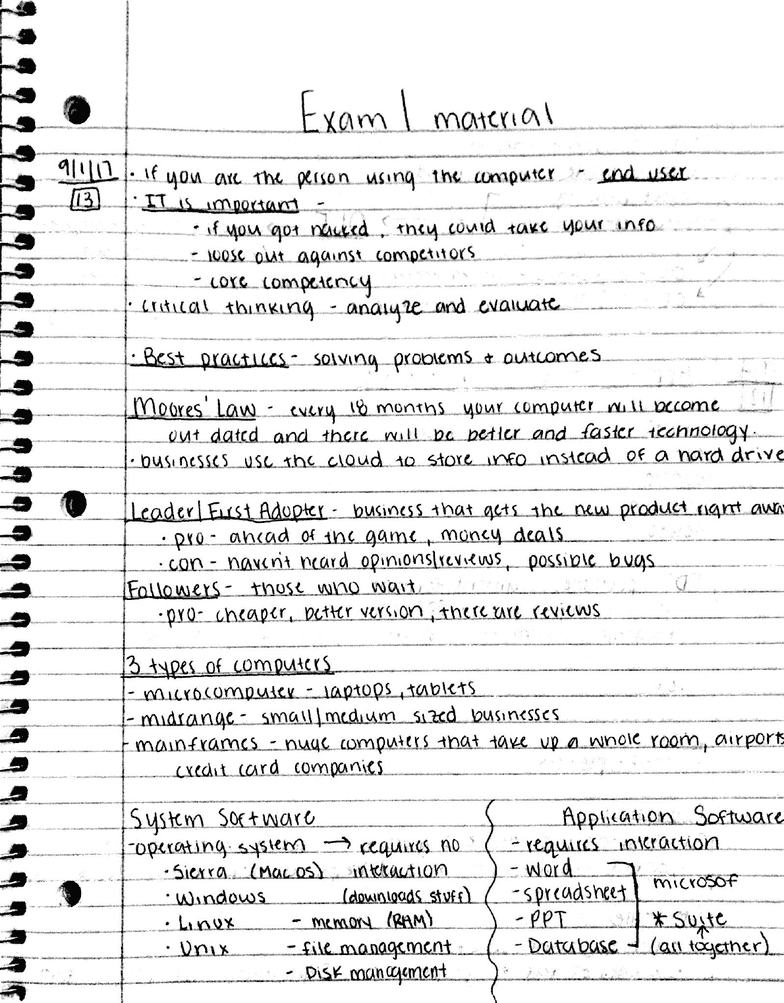 Exam 1 material
9/1/17 · if you are the person using the computer - end user
13 · IT is important -
· if you got hacked, they could take your info
- loose out against competitors
- core competency
· critical thinking - analyze and evaluate
· Best practices - solving problems & outcomes
Moores' Law - every 18 months your computer will become
out dated and there will be better and faster technology.
· businesses use the cloud to store info instead of a hard drive
Leader/First Adopter - business that gets the new product right awa
· pro - ahead of the game, money deals
· con - haven't heard opinions/reviews, possible bugs
Followers - those who wait
· pro - cheaper, better version, there are reviews
3 types of computers
- microcomputer - laptops, tablets
- midrange - small/medium sized businesses
- mainframes - huge computers that take up a whole room, airports
credit card companies
System Software
- operating system → requires no
· Sierra (Mac OS) interaction
· Windows (downloads stuff)
· Linux - memory (RAM)
· Unix - file management
- Disk management
Application Software
- requires interaction
- Word
- spreadsheet microsof
- PPT * Suite
- Database (all together)